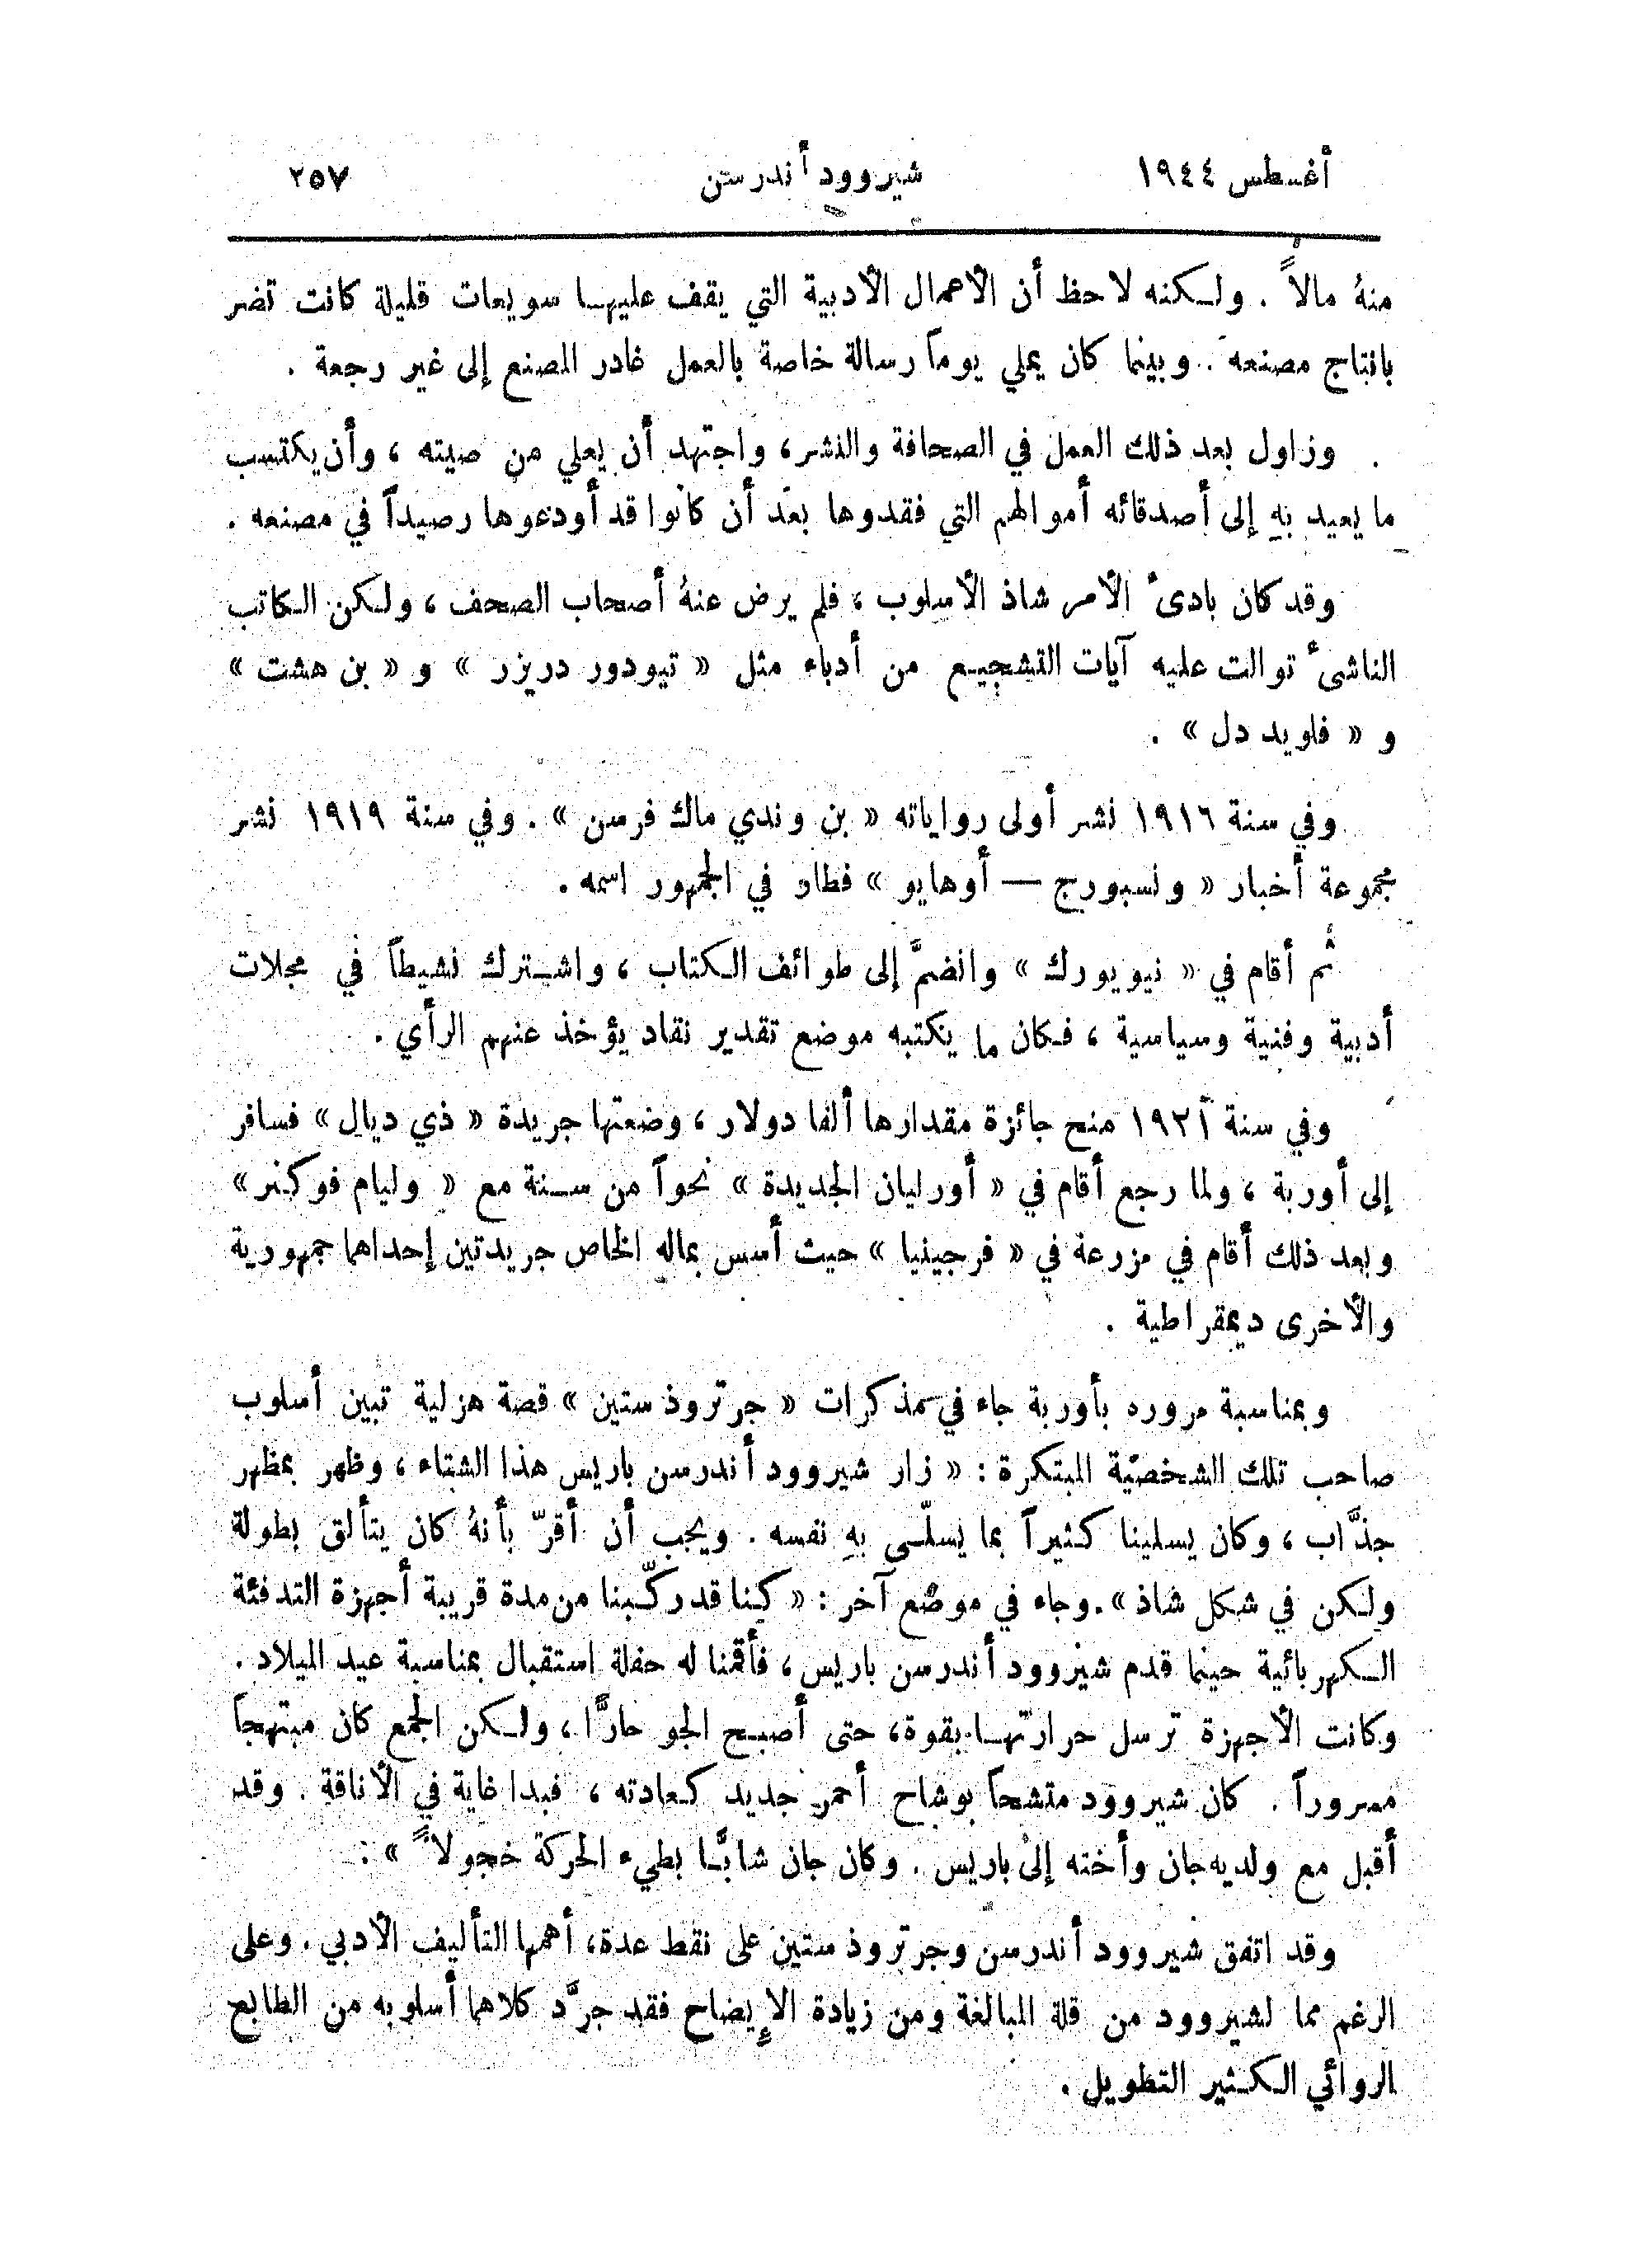 أغسطس ١٩٤٤ شيروود أندرسن ٢٥٧
منهُ مالاً . ولـكنه لاحظ أن الأعمال الأدبية التي يقف عليهـا سويعات قليلة كانت تضر
بانتاج مصنعه . وبينما كان يملي يوماً رسالة خاصة بالعمل غادر المصنع إلى غير رجعة .
وزاول بعد ذلك العمل في الصحافة والنشر ، واجتهد أن يعلي من صيته ، وأن يكتسب
ما يعيد بهِ إلى أصدقائه أموالهم التي فقدوها بعد أن كانوا قد أودعوها رصيداً في مصنعه .
وقد كان بادئ الأمر شاذ الأسلوب ، فلم يرض عنهُ أصحاب الصحف ، ولـكن الـكاتب
الناشئ توالت عليه آيات التشجيـع من أدباء مثل « تيودور دريزر » و « بن هشت »
و « فلويد دل » .
وفي سنة ١٩١٦ نشر أولى رواياته « بن وندي ماك فرسن » . وفي سنة ١٩١٩ نشر
مجموعة أخبار « ونسبورج — أوهايو » فطار في الجمهور اسمه .
ثُم أقام في « نيويورك » وانضمَّ إلى طوائف الـكتاب ، واشـترك نشيطاً في مجلات
أدبية وفنية وسياسية ، فـكان ما يكتبه موضع تقدير نقاد يؤخذ عنهم الرأي .
وفي سنة ١٩٢١ منح جائزة مقدارها ألفا دولار ، وضعتها جريدة « ذي ديال » فسافر
إلى أوربة ، ولما رجع أقام في « أورليان الجديدة » نحواً من سـنة مع « وليام فوكنر »
وبعد ذلك أقام في مزرعة في « فرجينيا » حيث أسس بماله الخاص جريدتين إحداهما جمهورية
والأخرى ديمقراطية .
وبمناسبة مروره بأوربة جاء في مذكرات « جرتروذ ستين » قصة هزلية تبين أسلوب
صاحب تلك الشخصيّة المبتكرة : « زار شيروود أندرسن باريس هذا الشتاء ، وظهر بمظهر
جذَّاب ، وكان يسلينا كثيراً بما يسلّـى بهِ نفسه . ويجب أن أقرّ بأنهُ كان يتألق بطولة
ولـكن في شكل شاذ » . وجاء في موضع آخر : « كـنا قد ركّـبنا من مدة قريبة أجهزة التدفئة
الـكهربائية حينما قدم شيروود أندرسن باريس ، فأقمنا له حفلة استقبال بمناسبة عيد الميلاد .
وكانت الأجهزة ترسل حرارتهـا بقوة ، حتى أصبـح الجو حارًّا ، ولـكن الجمع كان مبتهجاً
مسروراً . كان شيروود متشحاً بوشاح أحمر جديد كـعادته ، فبدا غاية في الأناقة . وقد
أقبل مع ولديه جان وأخته إلى باريس . وكان جان شابًّـا بطيء الحركة خجولاً » :
وقد اتفق شيروود أندرسن وجرتروذ ستين على نقط عدة ، أهمها التأليف الأدبي . وعلى
الرغم مما لشيروود من قلة المبالغة ومن زيادة الإيضاح فقد جرَّد كلاهما أسلوبه من الطابع
الروائي الـكـثير التطويل .